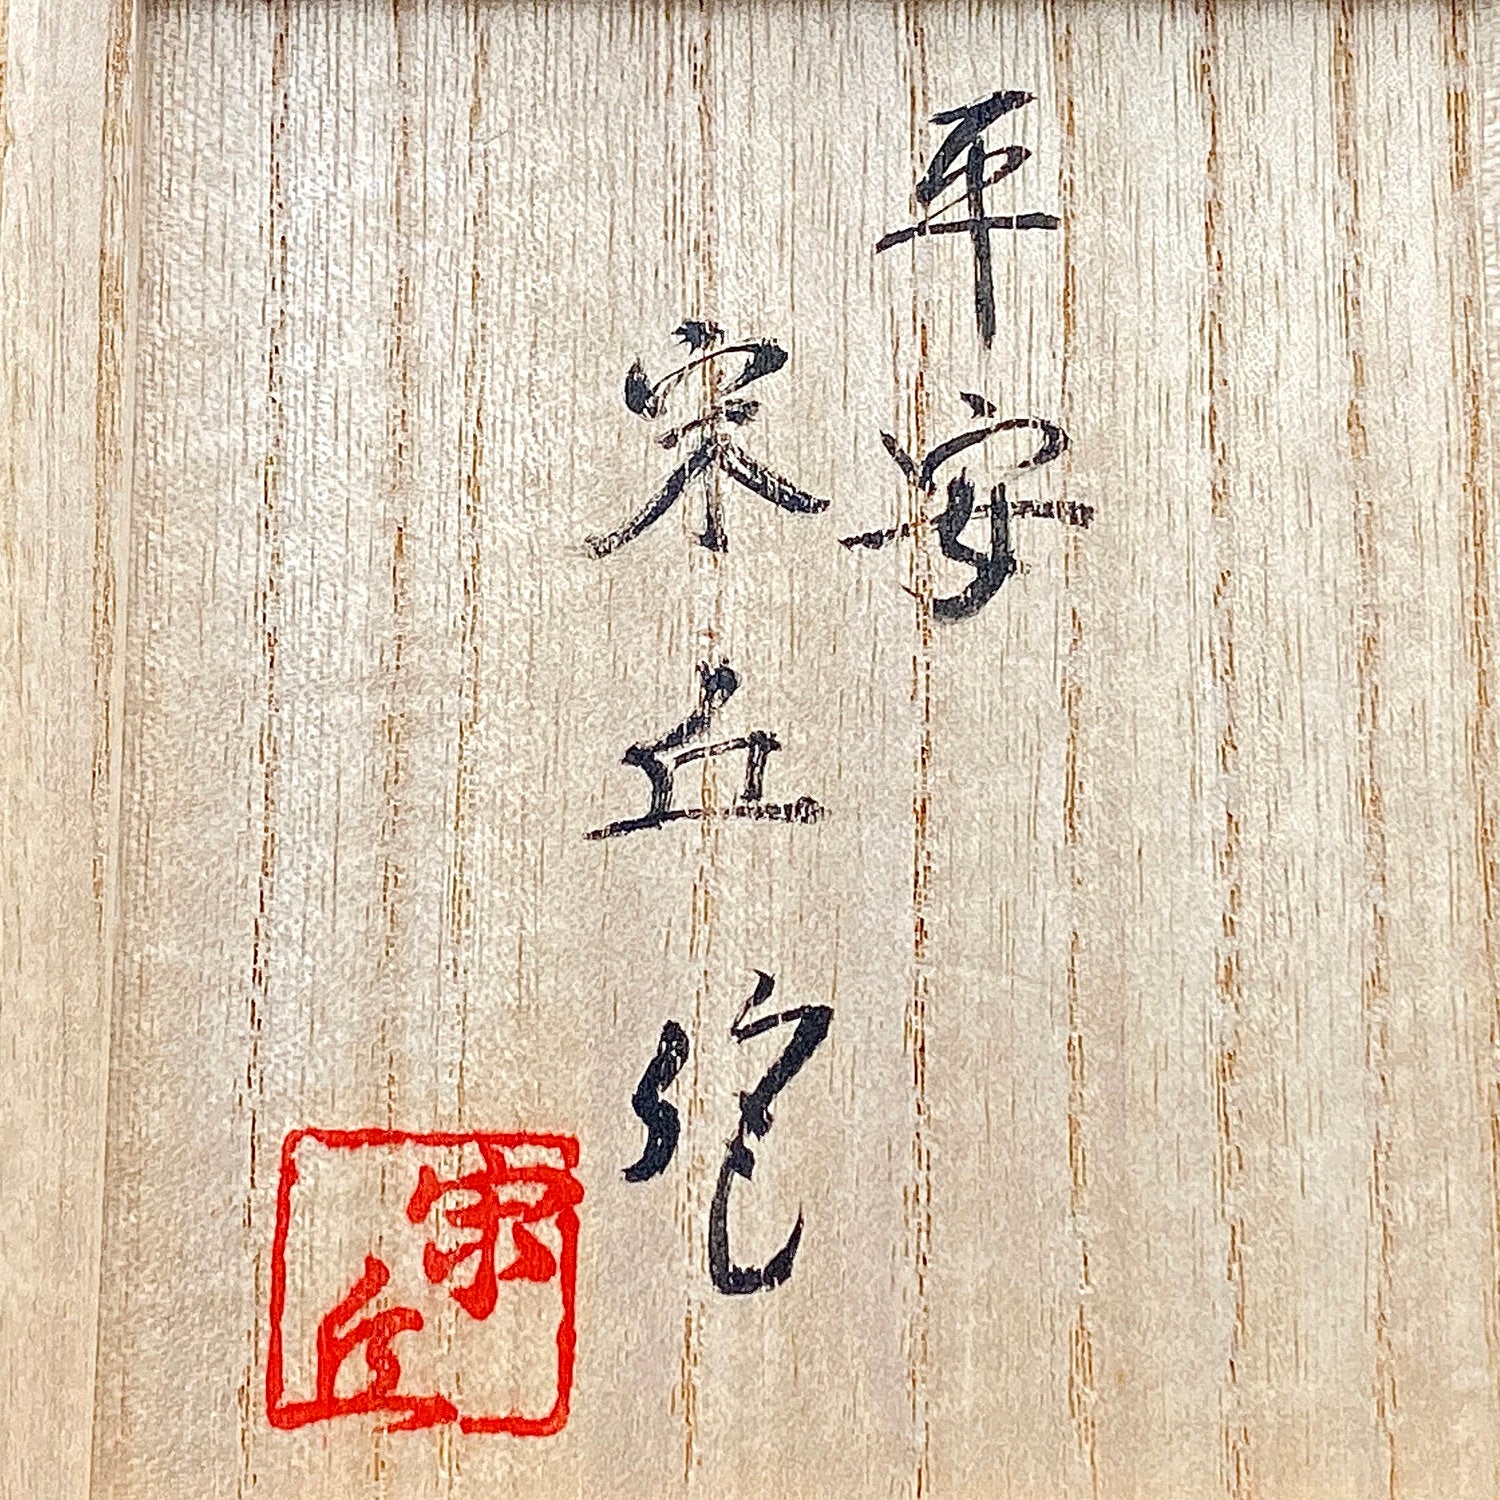 平安
宋丘
宋丘